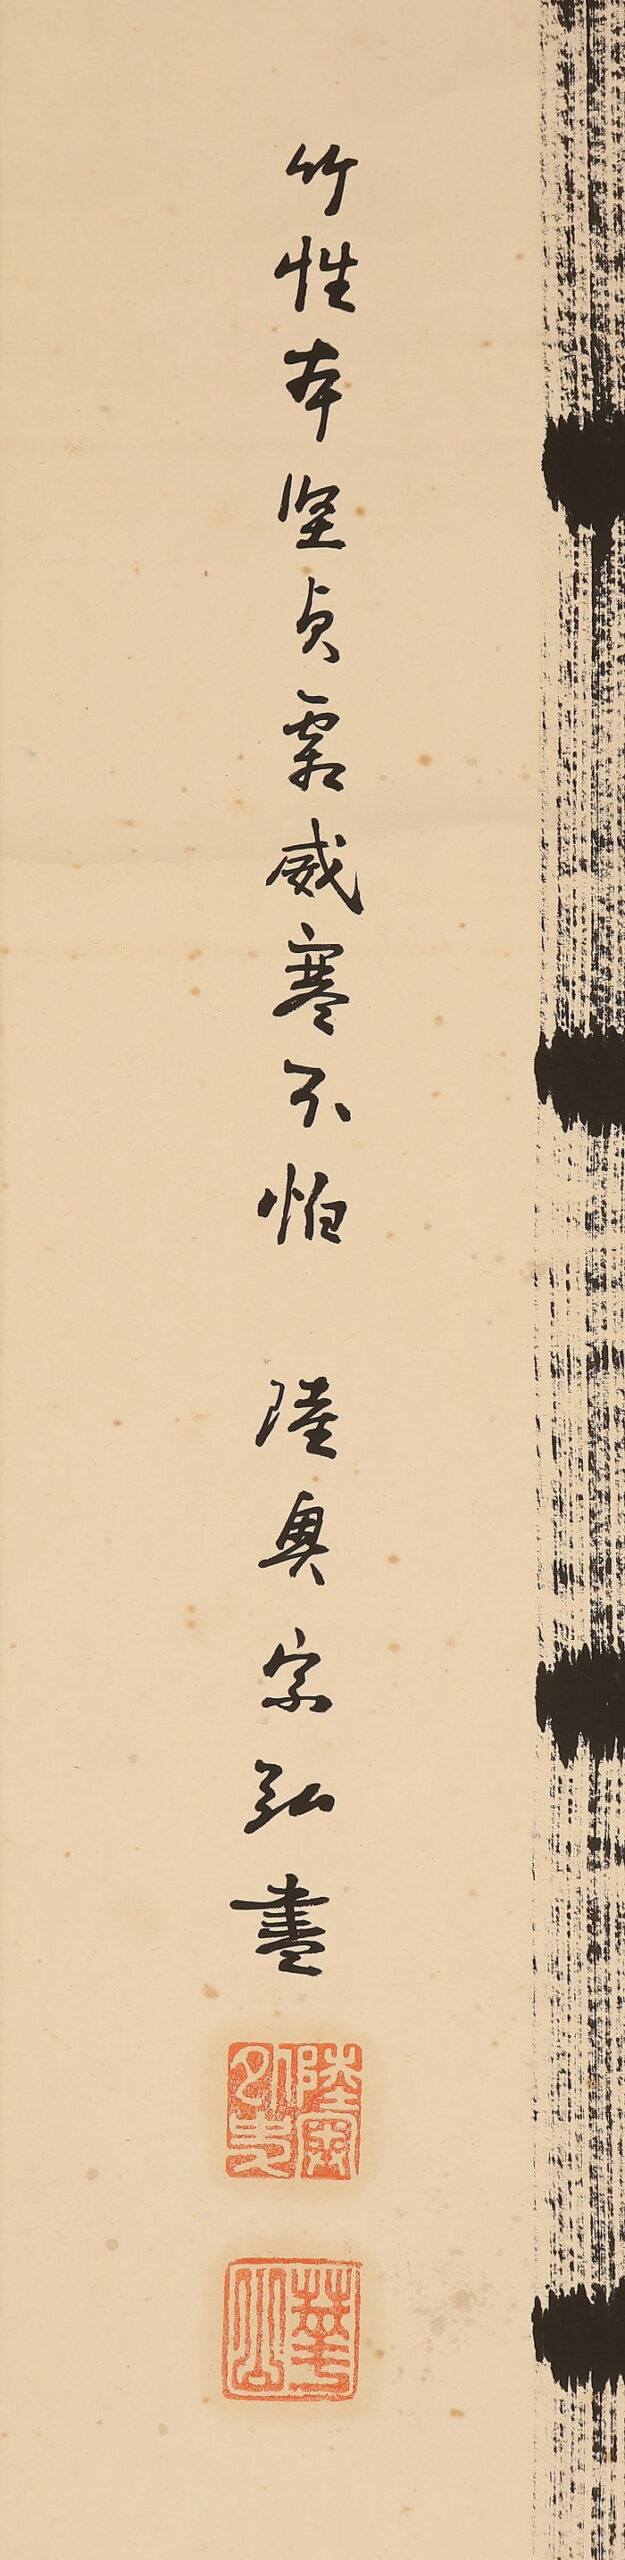 竹性本堅貞霜威寒不怕　陸奥宗弘畫